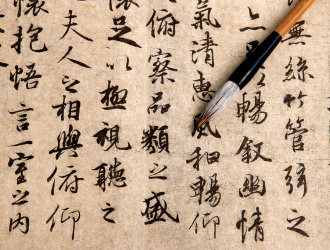 無絲竹管弦之
以暢叙幽情
氣清惠風和暢仰
俯察品類之盛
懷足以極視聽之
夫人之相與俯仰
懷抱悟言一室之内